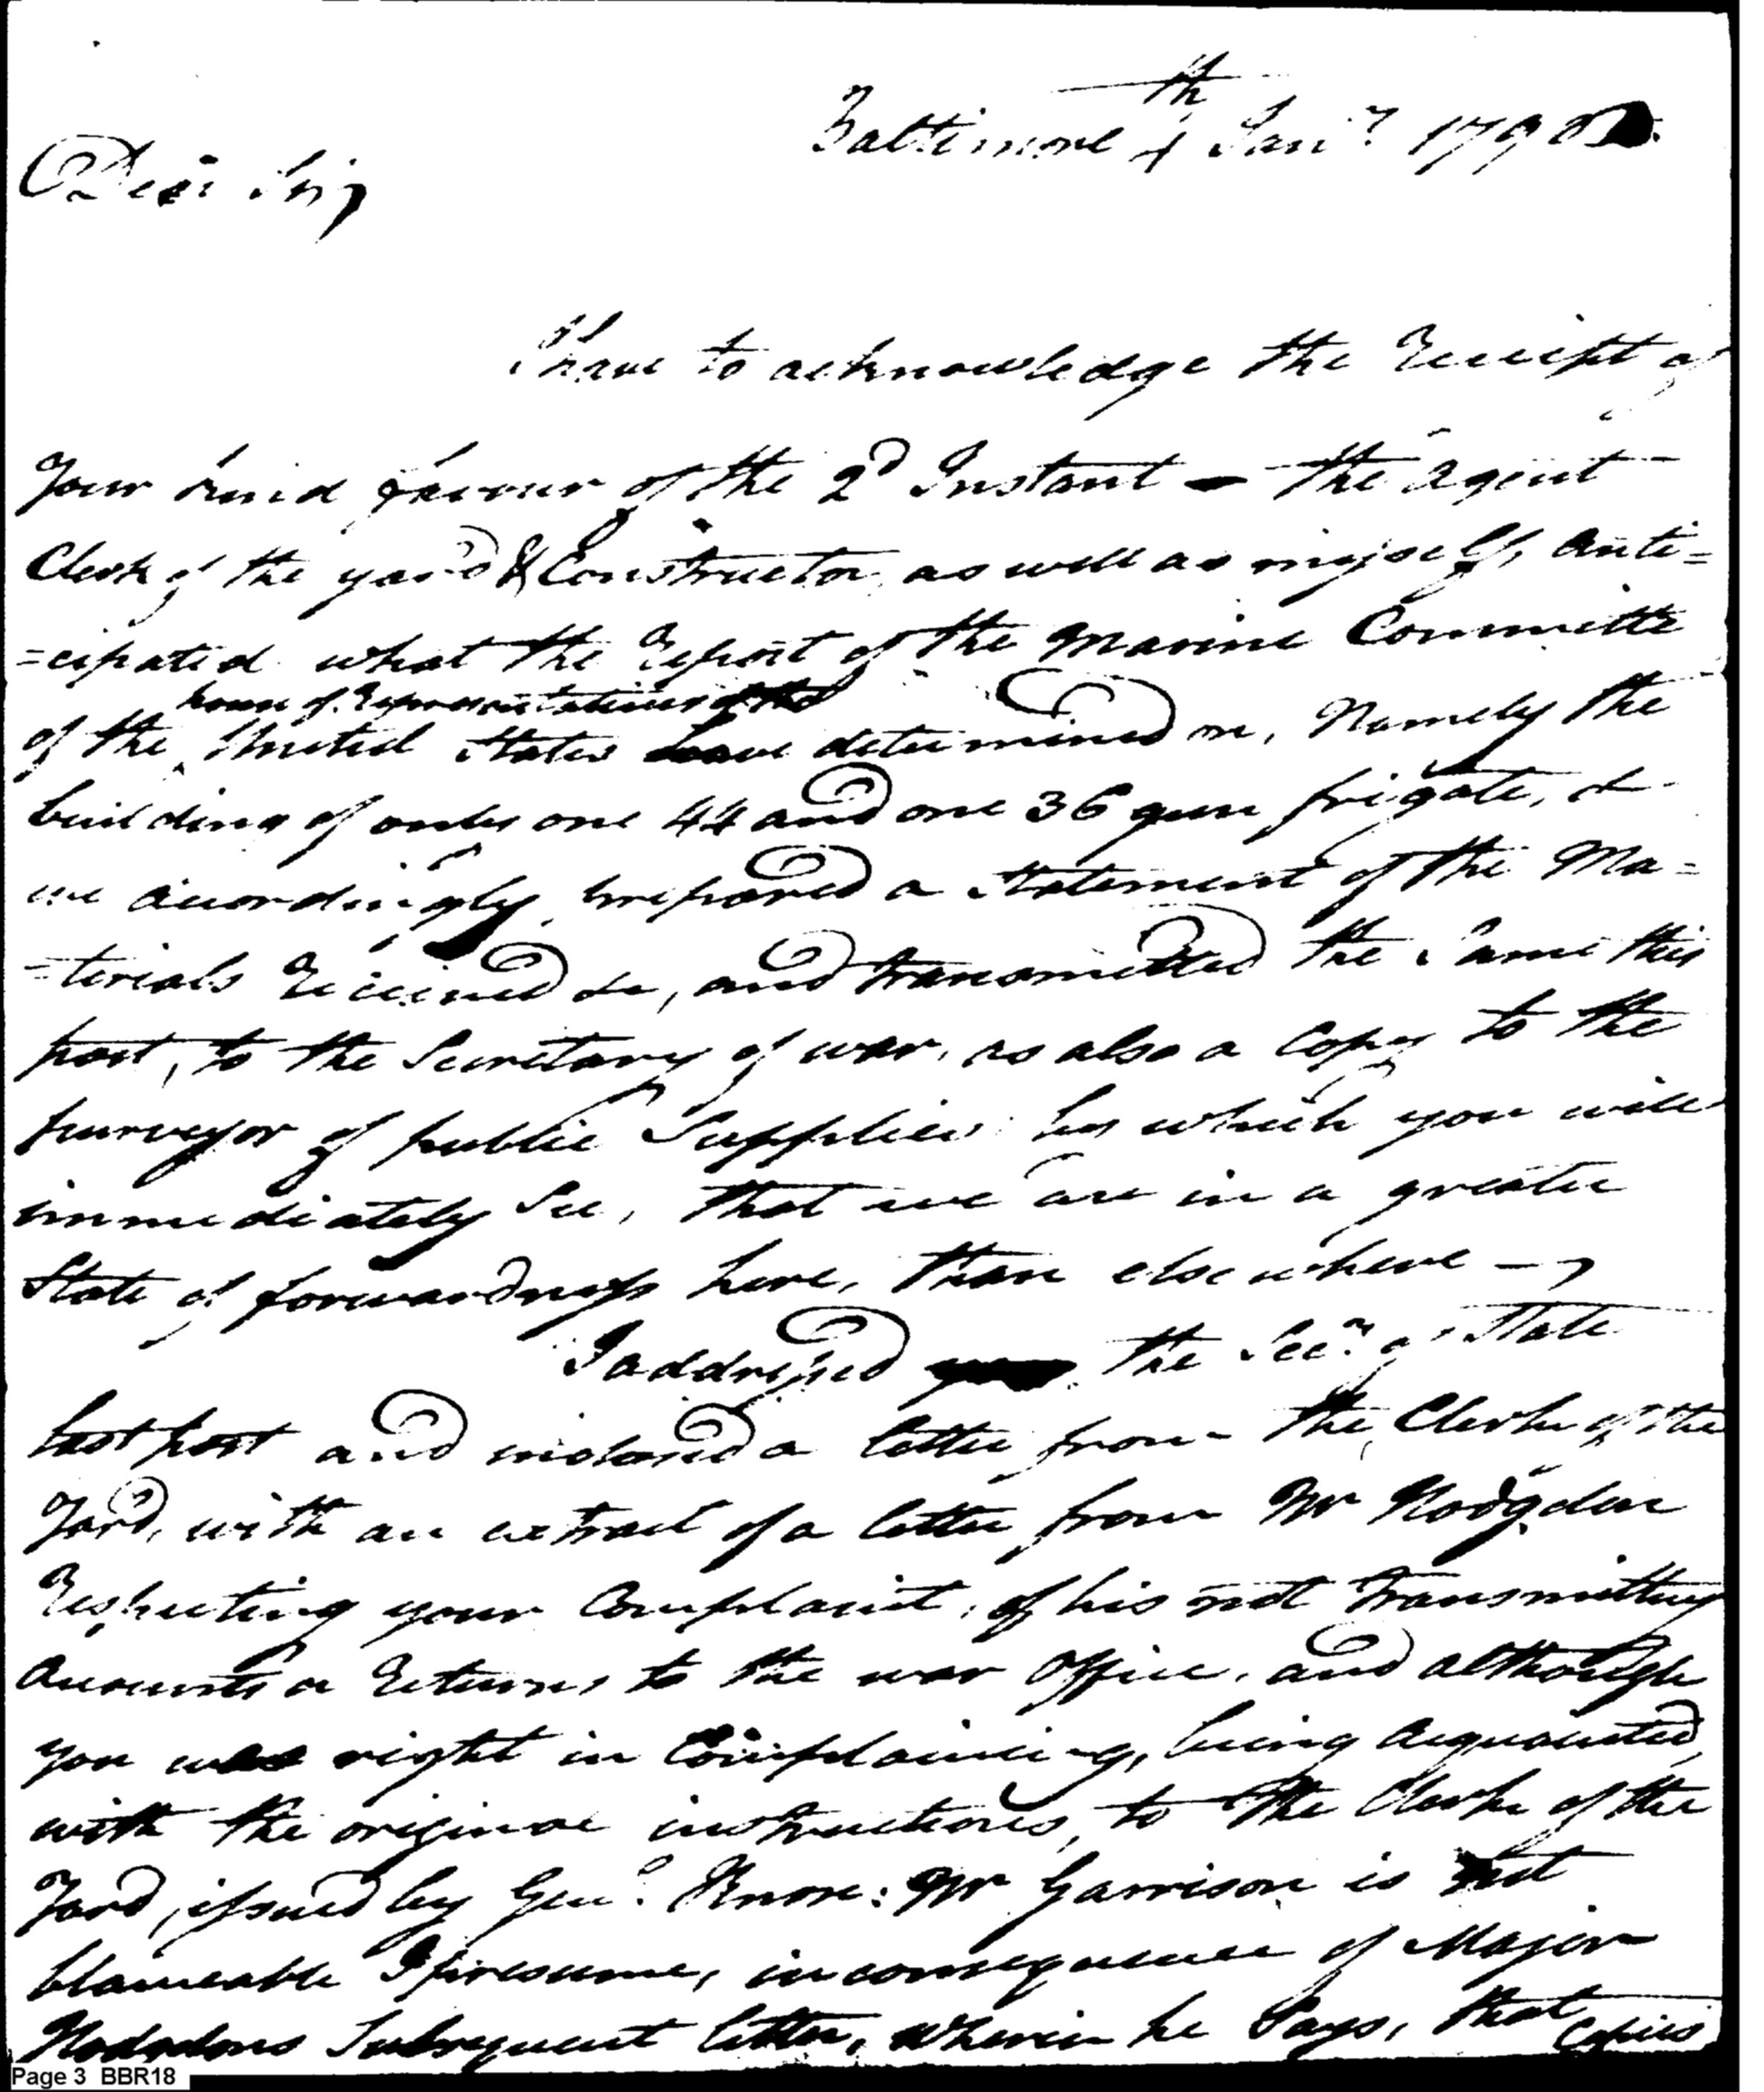 Baltimore 4th Jany. 179
Dear Sir,
I have to acknowledge the Receipt of
Your kind favour of the 2d Instant - the agent
Clerk of the yard & Constructor, as well as myself, anti=
=cipated what the Report of the Marine Committe
house of Representatives of the
of the United States have determined on, Namely the
building of only one 44 and one 36 gun frigate, &
we accordingly prepared a Statement of the Ma=
=terials Received &c, and transmitted the Same this
post, to the Secretary of war, as also a Copy to the
purveyor of public Supplies by which you will
immediately See, that we are in a greater
State of forwardness here, than elsewhere -
I addressed the Secy. of State
last post and inclosed a letter from the Clerk of the
Yard, with an extract of a letter from Mr Hodgdon
Respecting your Complaint, of his not transmitting
Accounts or Returns to the war Office, and although
you was right in Complaining, being acquainted
with the original instructions, to the Clerk of the
Yard, issued by Genl. Knox: Mr Garrison is not
blameable I presume, in consequence of Major
Hodgdons Subsequent letter, wherein he Says, that Copies
Page 3 BBR18